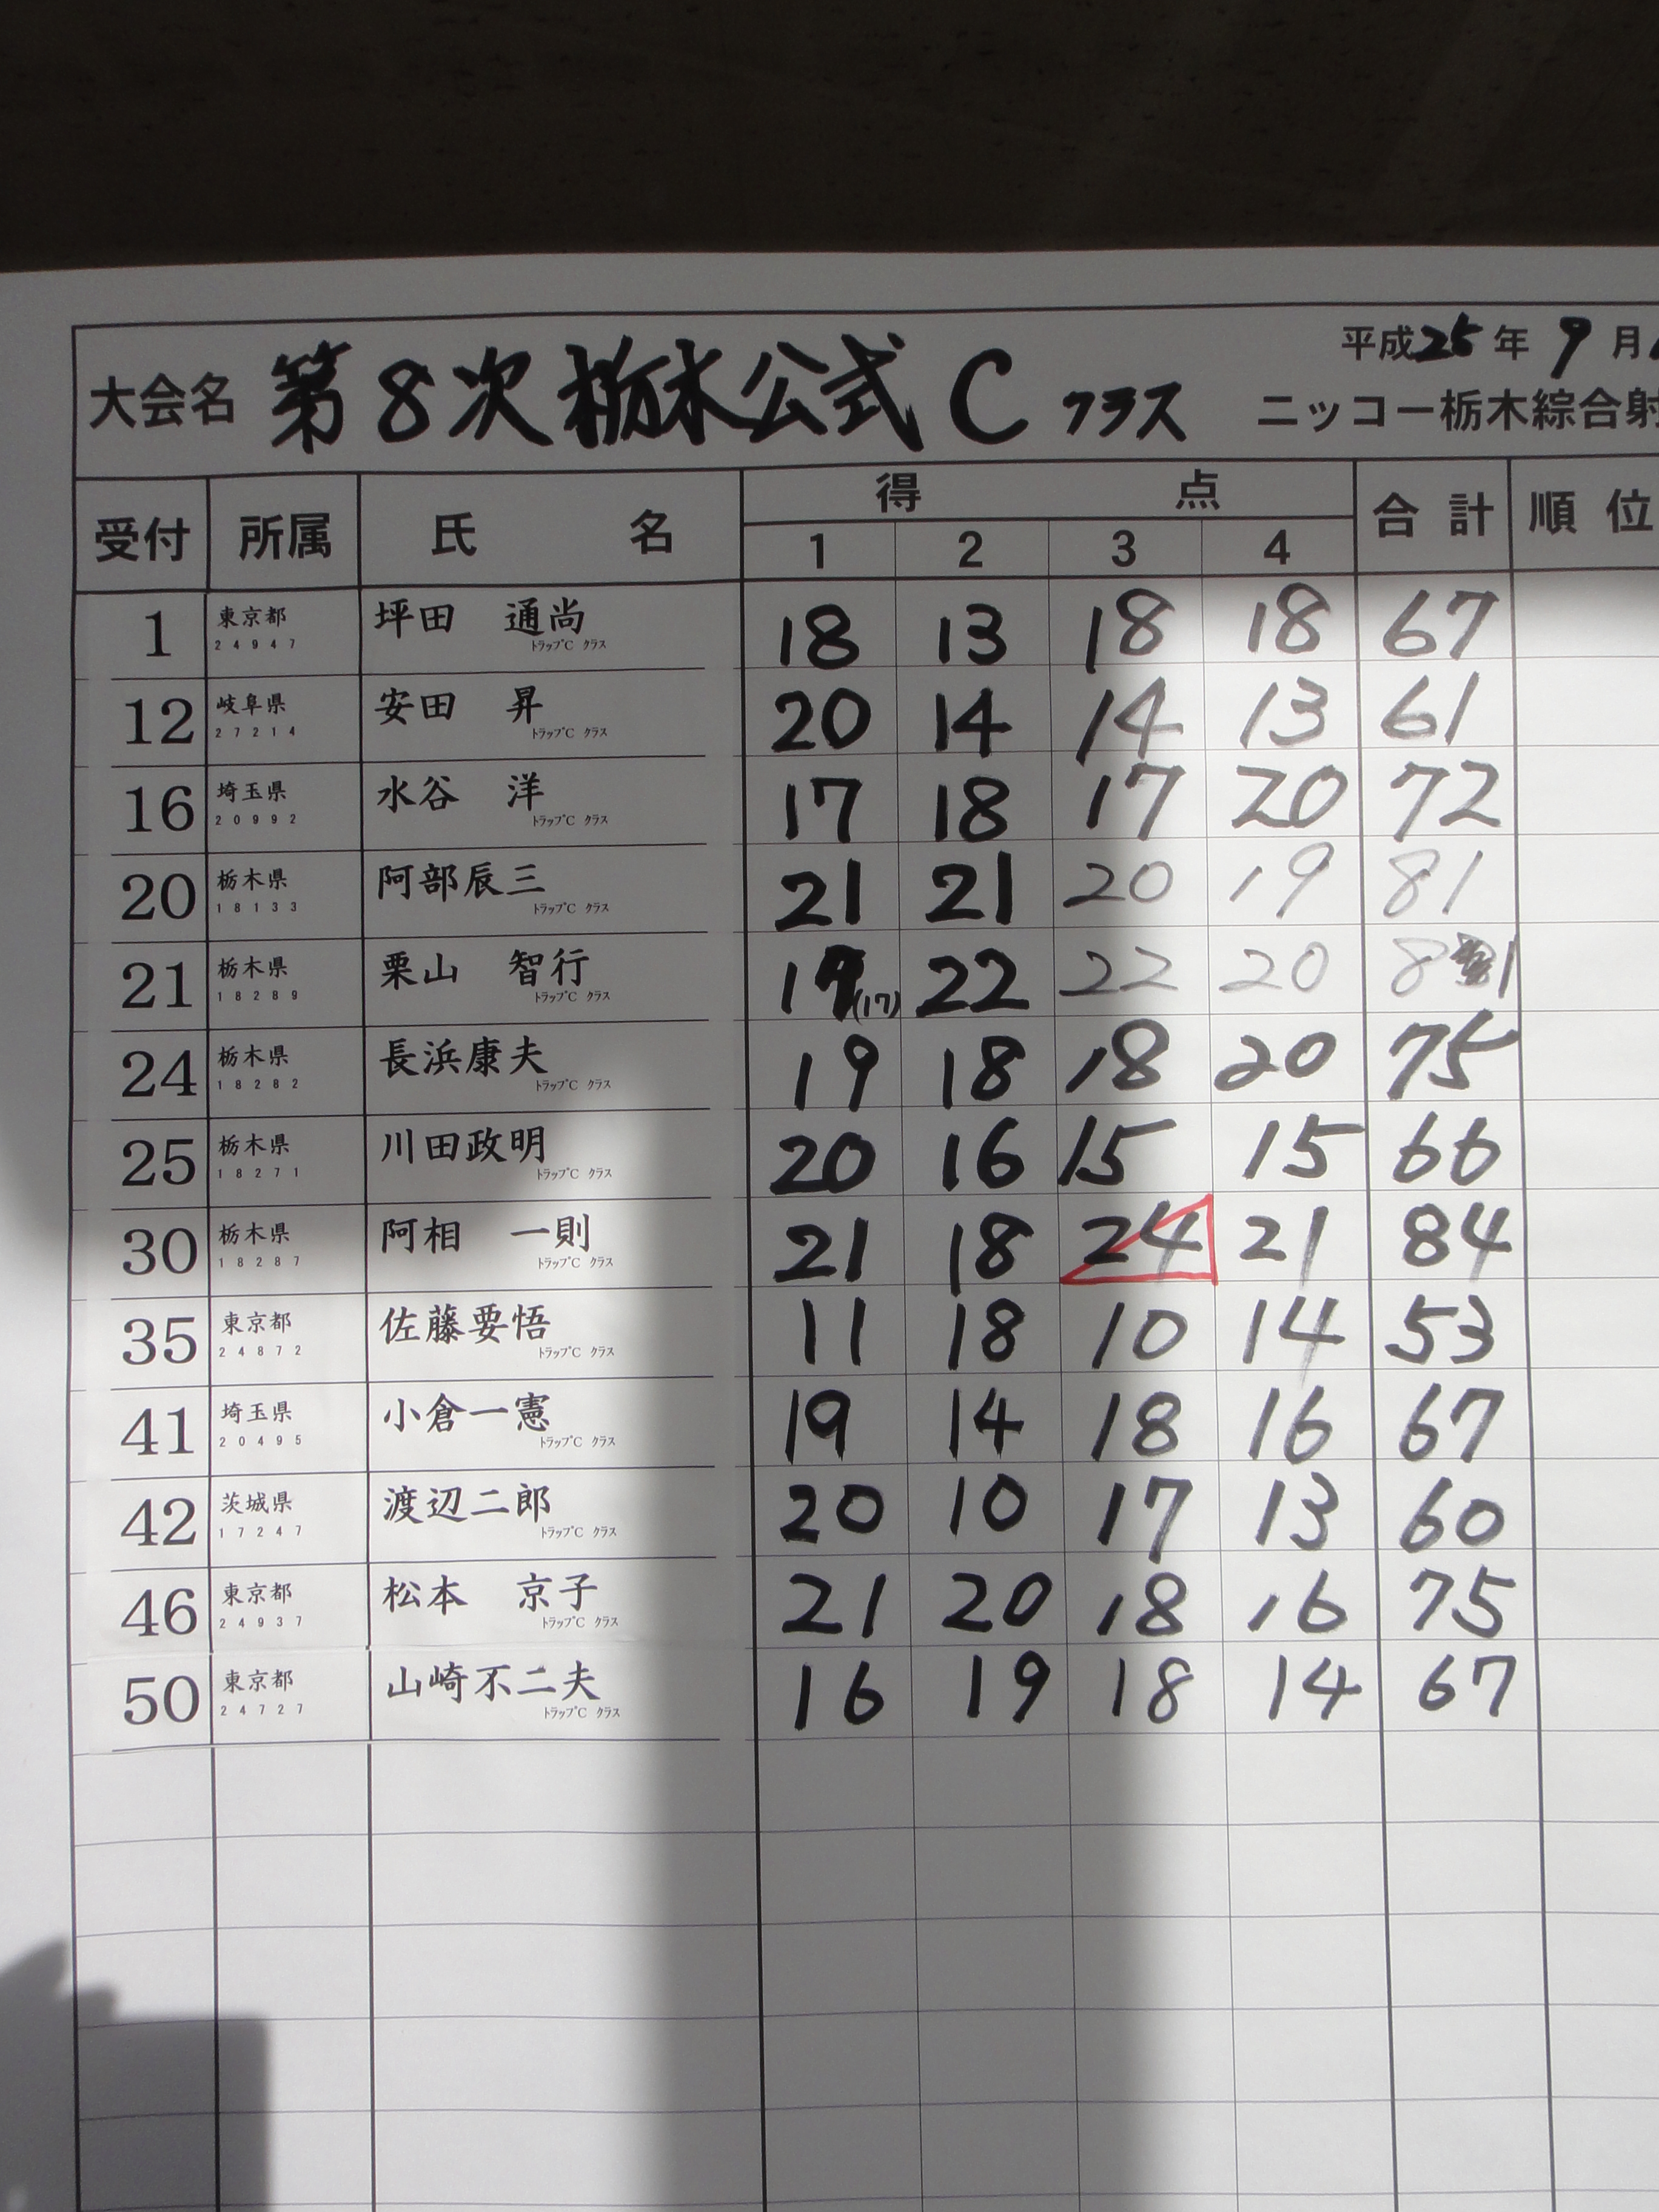 平成25年 9月
大会名 第8次栃木公式 C クラス ニッコー栃木綜合射
受付 所属 氏 名 得 点 合計 順位
1 2 3 4
1 東京都 24947 坪田 通尚 トラップC クラス 18 13 18 18 67
12 岐阜県 27214 安田 昇 トラップC クラス 20 14 14 13 61
16 埼玉県 20992 水谷 洋 トラップC クラス 17 18 17 20 72
20 栃木県 18133 阿部辰三 トラップC クラス 21 21 20 19 81
21 栃木県 18289 栗山 智行 トラップC クラス (17) 22 22 20 81
24 栃木県 18282 長浜康夫 トラップC クラス 19 18 18 20 75
25 栃木県 18271 川田政明 トラップC クラス 20 16 15 15 66
30 栃木県 18287 阿相 一則 トラップC クラス 21 18 24 21 84
35 東京都 24872 佐藤要悟 トラップC クラス 11 18 10 14 53
41 埼玉県 20495 小倉一憲 トラップC クラス 19 14 18 16 67
42 茨城県 17247 渡辺二郎 トラップC クラス 20 10 17 13 60
46 東京都 24937 松本 京子 トラップC クラス 21 20 18 16 75
50 東京都 24727 山崎不二夫 トラップC クラス 16 19 18 14 67